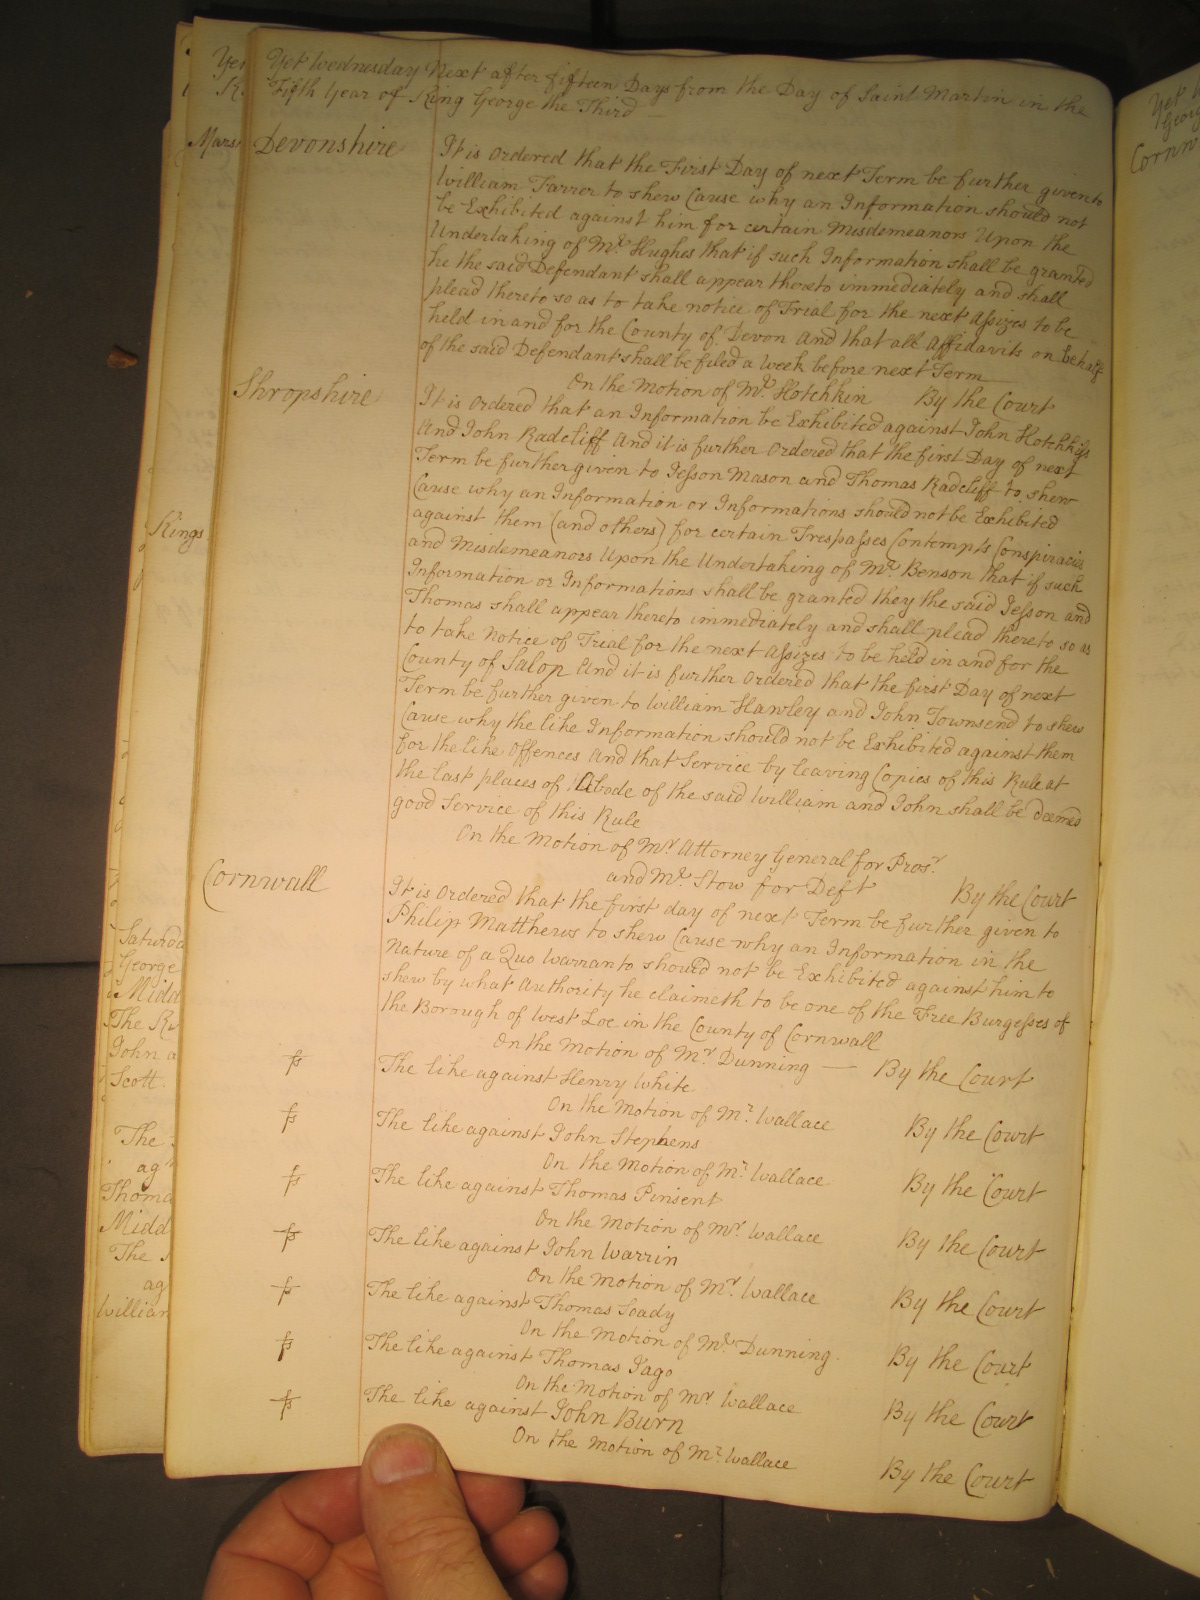 Yet Wednesday Next after fifteen Days from the Day of Saint Martin in the
Fifth Year of King George the Third
Devonshire
It is Ordered that the First Day of next Term be further given to
William Farrer to shew Cause why an Information should not
be Exhibited against him for certain Misdemeanors Upon the
Undertaking of Mr. Hughes that if such Information shall be granted
he the said Defendant shall appear thereto immediately and shall
plead thereto so as to take notice of Trial for the next Assizes to be
held in and for the County of Devon And that all Affidavits on behalf
of the said Defendant shall be filed a week before next Term
On the Motion of Mr. Hotchkin By the Court
Shropshire
It is Ordered that an Information be Exhibited against John Hotchkiss
And John Radcliff And it is further Ordered that the first Day of next
Term be further given to Jesson Mason and Thomas Radcliff to shew
Cause why an Information or Informations should not be Exhibited
against them (and others) for certain Trespasses Contempts Conspiracies
and Misdemeanors Upon the Undertaking of Mr. Benson that if such
Information or Informations shall be granted they the said Jesson and
Thomas shall appear thereto immediately and shall plead thereto so as
to take Notice of Trial for the next Assizes to be held in and for the
County of Salop And it is further Ordered that the first Day of next
Term be further given to William Hawley and John Townsend to shew
Cause why the like Information should not be Exhibited against them
for the like Offences And that Service by leaving Copies of this Rule at
the last places of Abode of the said William and John shall be deemed
good Service of this Rule
On the Motion of Mr Attorney General for Prosr.
and Mr. Stow for Deft By the Court
Cornwall
It is Ordered that the first day of next Term be further given to
Philip Matthews to shew Cause why an Information in the
Nature of a Quo Warranto should not be Exhibited against him to
shew by what Authority he claimeth to be one of the Free Burgesses of
the Borough of West Loe in the County of Cornwall
On the Motion of Mr. Dunning — By the Court
The like against Henry White
On the Motion of Mr. Wallace By the Court
The like against John Stephens
On the Motion of Mr. Wallace By the Court
The like against Thomas Pinsent
On the Motion of Mr. Wallace By the Court
The like against John Warrin
On the Motion of Mr. Wallace By the Court
The like against Thomas Toady
On the Motion of Mr. Dunning. By the Court
The like against Thomas Jago
On the Motion of Mr Wallace By the Court
The like against John Burn
On the Motion of Mr. Wallace By the Court
Mars
Kings
Saturda
George
Midd
The K
John a
Scott
The
ag
Thoma
Midd
The
ag
William
Yet
Georg
Cornw